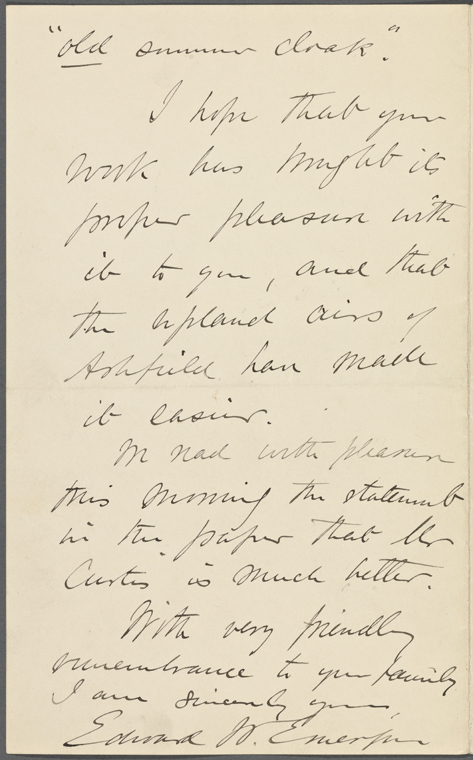 "old summer cloak".
I hope that your
work has brought its
proper pleasure with
it to you, and that
the upland airs of
Ashfield have made
it easier.
We read with pleasure
this morning the statement
in the paper that Mr
Curtis is much better.
With very friendly
remembrance to your family
I am sincerely yours,
Edward W. Emerson